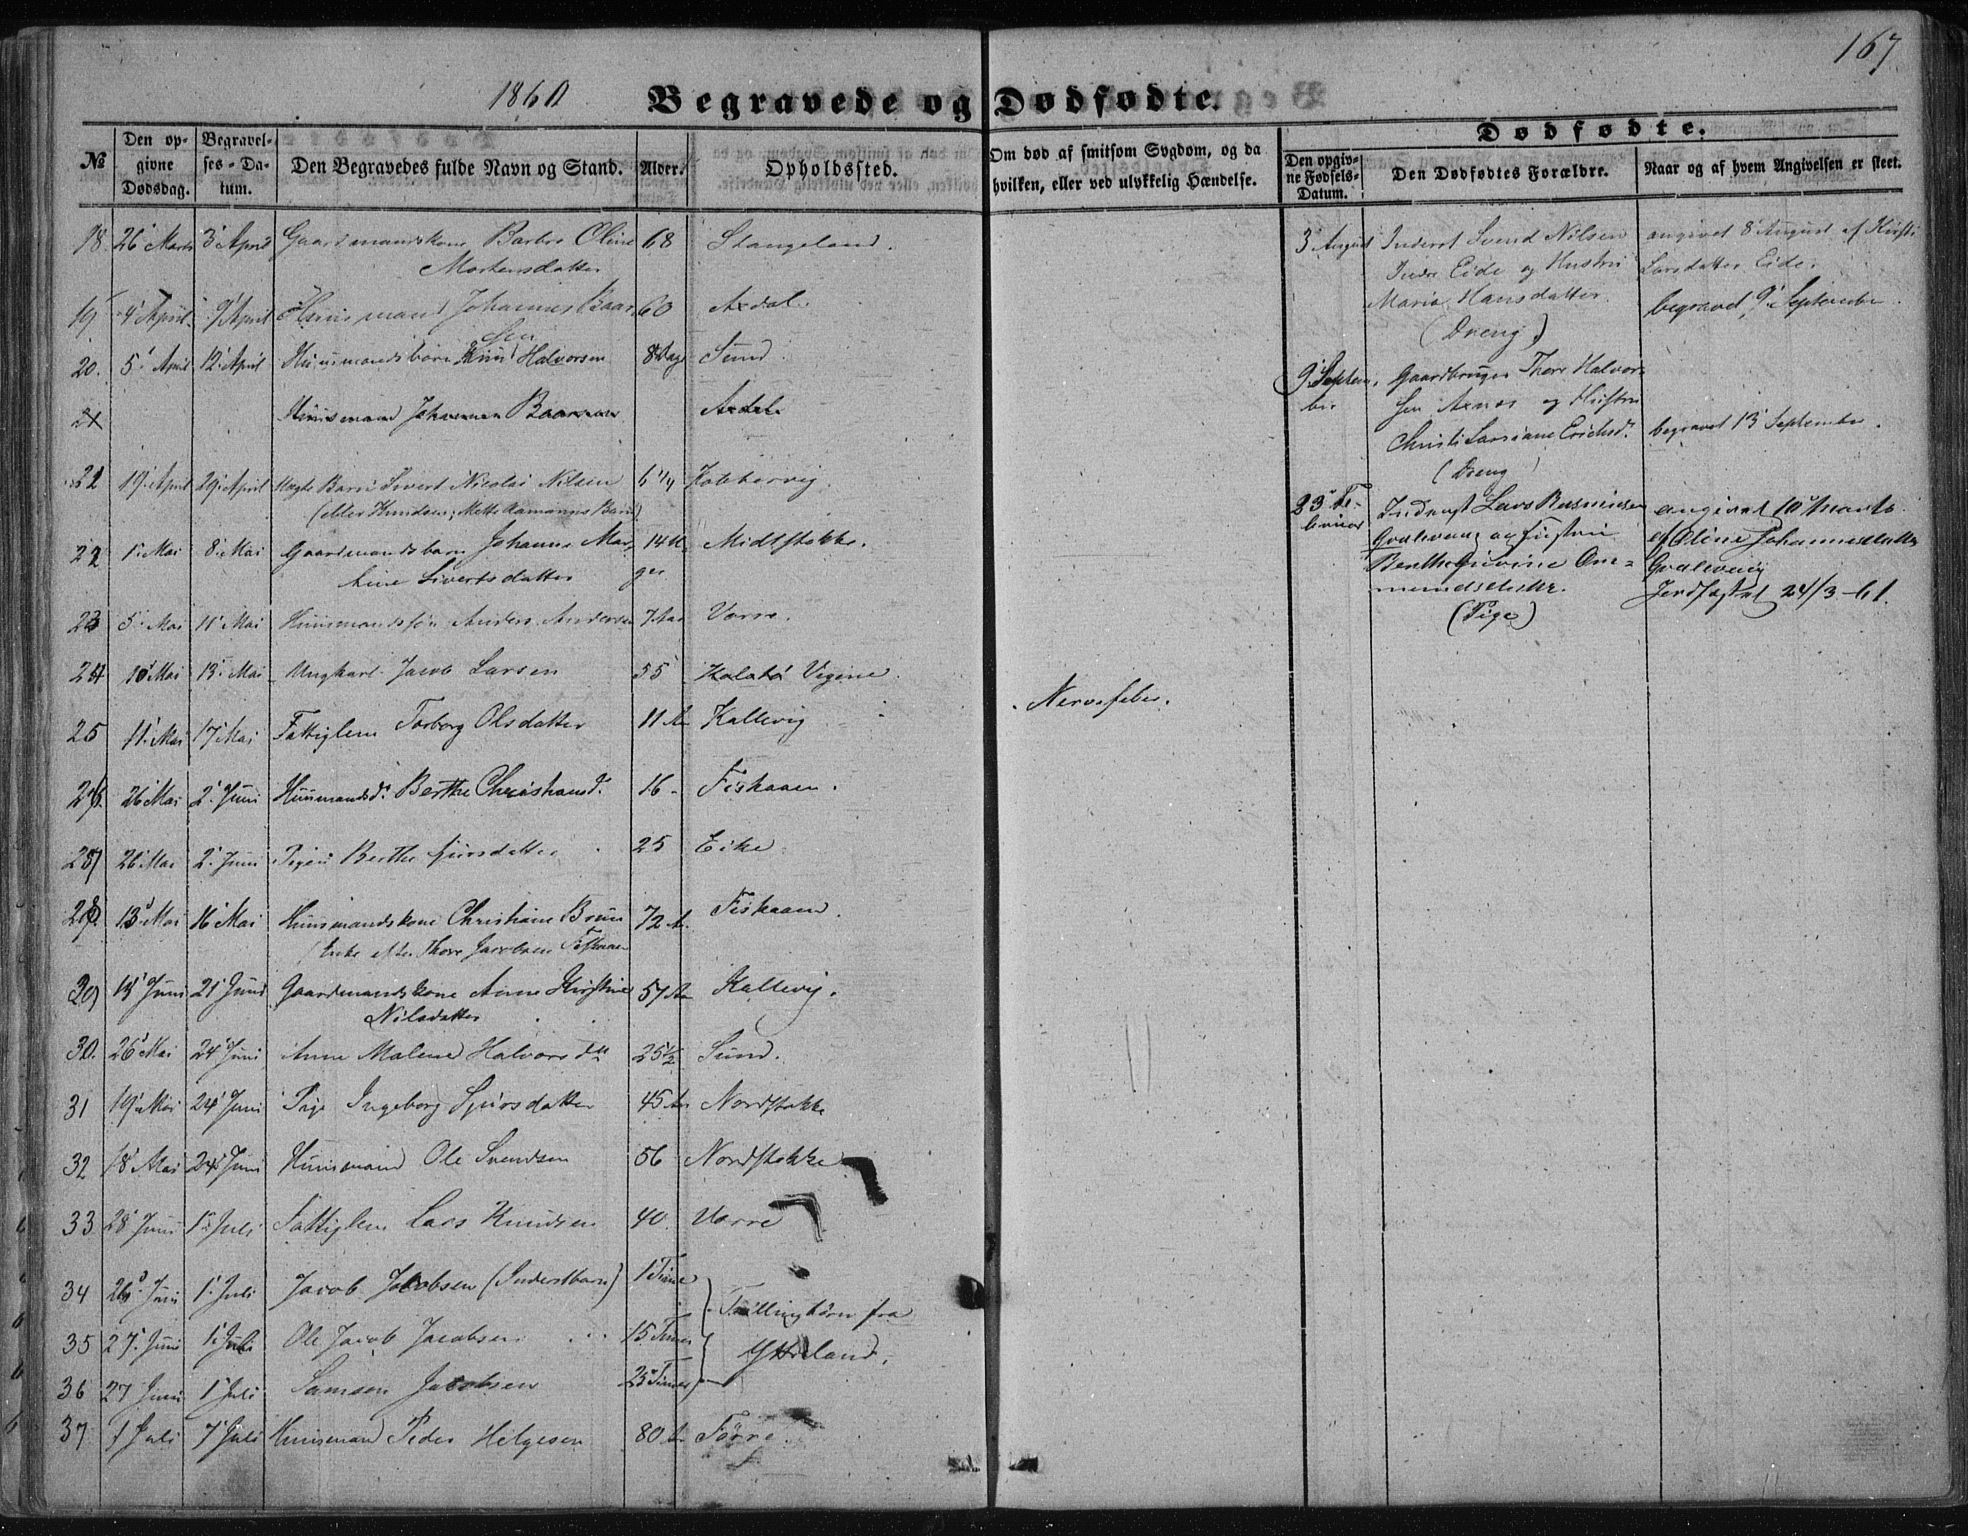 167
1860 Begravede og Dødfødte.
Dødfødte.
No
Den opgivne Dødsdag.
Begravelses-Datum.
Den Begravedes fulde Navn og Stand.
Alder.
Opholdssted.
Om død af smitsom Sygdom, og da hvilken, eller ved ulykkelig Hændelse.
Den opgivne Fødsels-Datum.
Den Dødfødtes Forældre.
Naar og af hvem Angivelsen er skeet.
18. 26 Marts 3 April Gaardmandskone Barbro Oline 68 Stangeland.
Mortensdatter
19 4 April 9 April Huusmand Johannes Baar- 60 Axdal.
sen
20. 5 April 12 April Huusmandsbarn Knud Halvorsen 8 Dage Sund
21 Huusmand Johannes Baarsen Axdal
21 19 April 29 April Barn Sivert Nicolai Nilsen 6 1/4 Kolbervig.
(eller Knudsen; Mette Barn)
22 1 Mai 8 Mai Gaardmandsbarn Johanne Mar- 14 U Midtstokke.
thine Sivertsdatter ger
23 5 Mai 11 Mai Huusmandssøn Anders Andersen 7 Aar Vorre.
24 10 Mai 13 Mai Ungkarl Jacob Larsen 55 Kalstø Vigene.
25 11 Mai 17 Mai Fattiglem Torborg Olsdatter 11 A Kallevig Nervefeber.
26. 26 Mai 2 Juni Huusmandsd. Berthe Christiansd. 16 Fiskaaen.
27 26 Mai 2 Juni Pigen Berthe 25 Eike
28 13 Mai 16 Mai Huusmandskone Christiane Bruun 72 A. Fiskaaen.
(Enke efter Thore Jacobsen Fiskaaen
29 15 Juni 21 Juni Gaardmandskone Anne Kirstine 57 Aar Kallevig.
Nilsdatter
30. 26 Mai 24 Juni Anne Malene Halvorsdtr 25 1/2 Sund.
31 19 Mai 24 Juni Pige Ingeborg Sjursdatter 45 Aar Nordstokke
32 18 Mai 24 Juni Huusmand Ole Svendsen 56 Nordstokke
33 28 Juni 1 Juli Fattiglem Lars Knudsen 40 Vorre
34 26 Juni 1 Juli Jacob Jacobsen (Inderstbarn) 1 Time
Trillingbørn fra
35 27 Juni 1 Juli Ole Jacob Jacobsen 15 Timer
Ytreland.
36 27 Juni 1 Juli Samson Jacobsen 23 Timer
37 1 Juli 7 Juli Huusmand Peder Helgesen 80 A. Førre.
3 August Inderst Svend Nilsen angivet 8 August af Kirsti
Indre Eide og Hustru Larsdatter Eide.
Maria Hansdatter. begravet 9 September
(Dreng)
9 Septem- Gaardbruger Thore Halvor-
ber sen Axnes og Hustru
Christi Larsiane Erichsd. begravet 13 September.
(Dreng)
23 Fe- Inderst Lars Rasmussen angivet 10 Marts
bruar Gvalevaag og Hustru af Oline Johannesdatter
Berthe Gurine Om- Gvalevaag
mundsdatter. Jordfæstet 24/3-61.
(Pige)